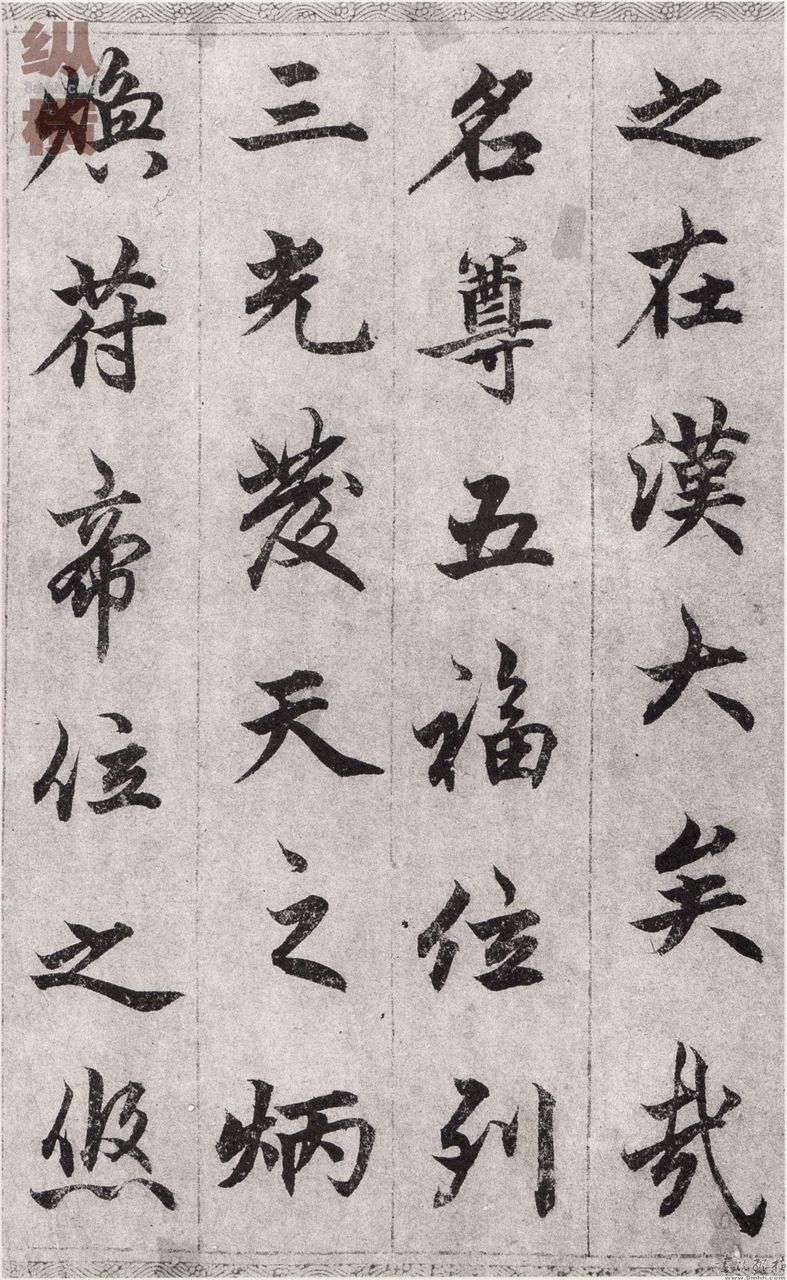 之在漢大矣哉
名尊五福位列
三光發天之炳
煥符帝位之悠
纵横
www.8mhh.com